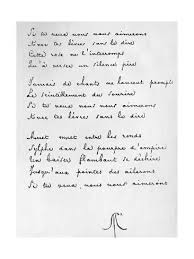 Si tu veux nous nous aimerons
Avec tes lèvres sans le dire
Cette rose ne l'interromps
Qu'à verser un silence pire

Jamais de chants ne lancent prompts
Le scintillement du sourire
Si tu veux nous nous aimerons
Avec tes lèvres sans le dire

Muet muet entre les ronds
Sylphe dans la pourpre d'empire
Un baiser flambant se déchire
Jusqu'aux pointes des ailerons
Si tu veux nous nous aimerons